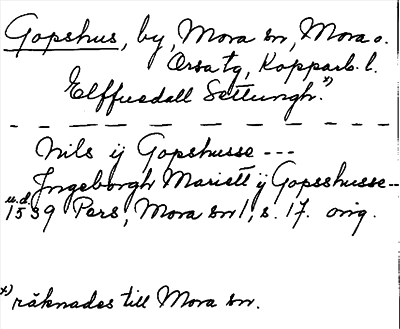 Gopshus, by, Mora sn, Mora o.
Orsa tg, Kopparb. l.
Elffuedall Settungh. x)
Nils ij Gopshusse ---
Jngeborgh Mariett ij Gopsshusse --
u.d. 1539 Pers, Mora sn 1, s. 17. orig.
x) räknades till Mora sn.